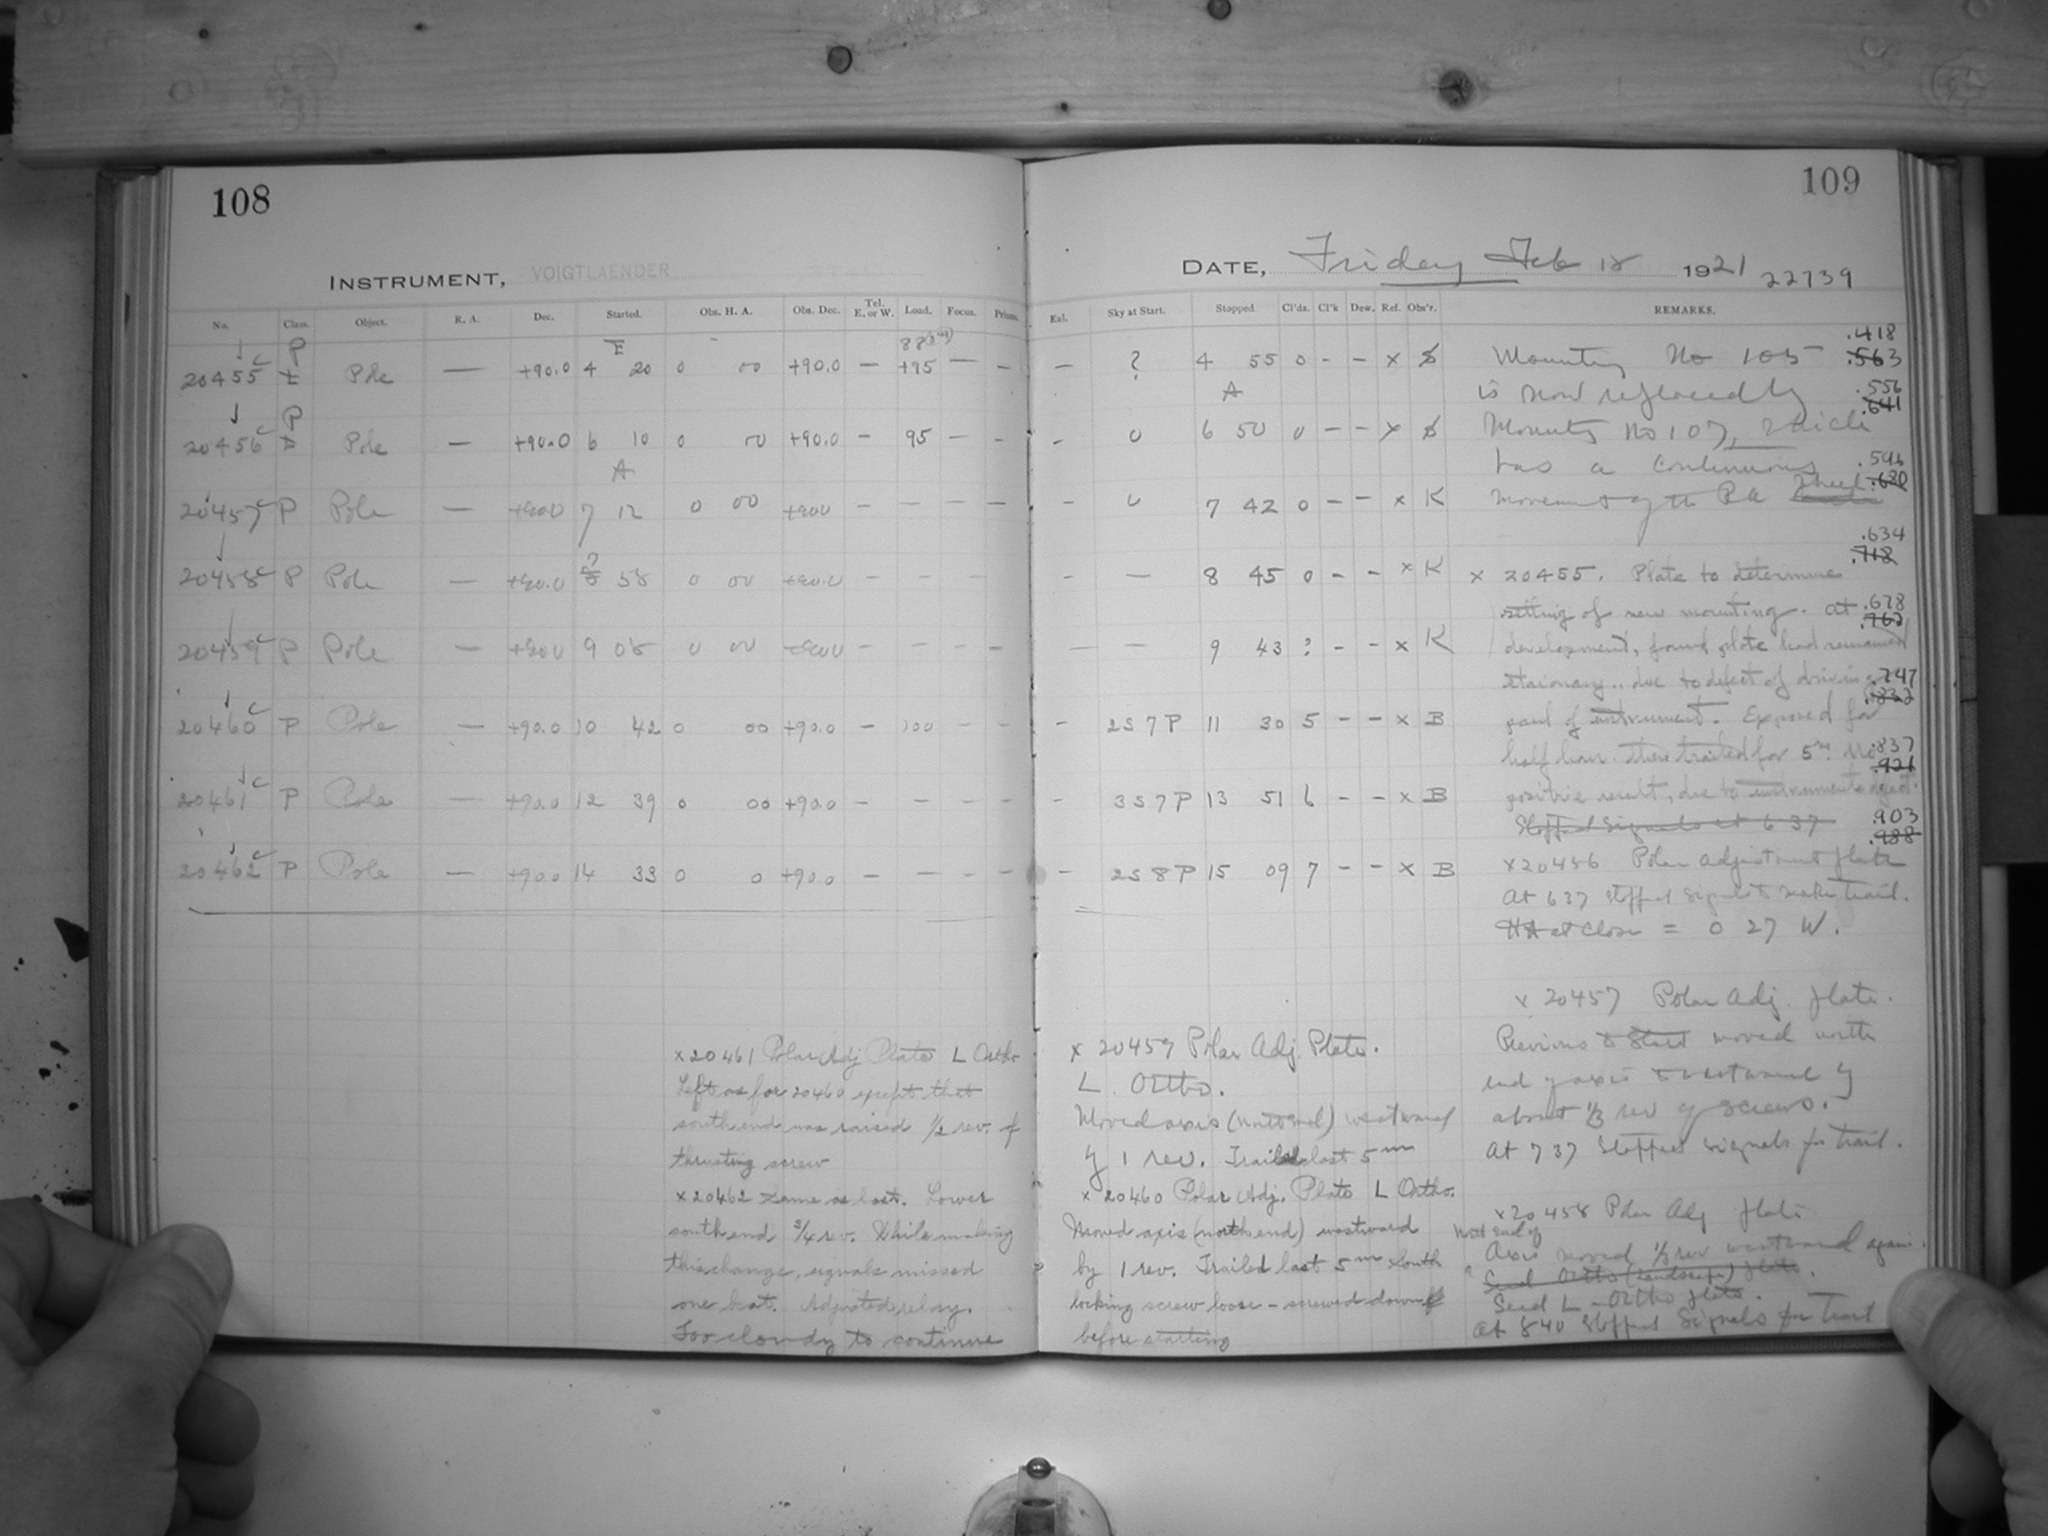 108
INSTRUMENT, VOIGTLAENDER
No. Class. Object. R. A. Dec. Started. Obs. H. A. Obs. Dec. Tel. E. or W. Load. Focus. Prisms.
20455 Pole — +90.0 4 20 0 00 +90.0 — +95 — —
20456 P Pole — +90.0 6 10 0 00 +90.0 — 95 — —
A
20457 P Pole — +900 7 12 0 00 +900 — — — —
20458 P Pole — +90.0 58 0 00 +90.0 — — — —
20459 P Pole — +900 9 05 0 00 +900 — — — —
20460 P Pole — +90.0 10 42 0 00 +90.0 — 100 — —
20461 P Pole — +90.0 12 39 0 00 +90.0 — — — —
20462 P Pole — +90.0 14 33 0 0 +90.0 — — — —
x 20461 Polar Adj Plate L Ortho
Left as for 20460 except that
south end was raised 1/2 rev. of
thrusting screw
x 20462 Same as last. Lower
south end 3/4 rev. While making
this change, signals missed
one beat. Adjusted relay.
Too cloudy to continue
109
DATE, Friday Feb 18 1921
22739
Eal. Sky at Start. Stopped Cl'ds. Cl'k Dew. Ref. Obs'r. REMARKS.
— ? 4 55 0 - - x
A
- 0 6 50 0 - - x
- 0 7 42 0 - - x K
- — 8 45 0 - - x K
— — 9 43 ? - - x K
- 2S7P 11 30 5 - - x B
- 3S7P 13 51 6 - - x B
- 2S8P 15 09 7 - - x B
.418
.563
.556
.641
.596
.680
.634
.718
.678
.762
.747
.832
.837
.921
.903
.988
Mounting No 105
is now replaced by
Mounting No 107, which
has a continuous
movement of the RA
x 20455. Plate to determine
setting of new mounting. At
development, found plate had remained
stationary.. due to defect of driving
part of instrument. Exposed for
half hour then trailed for 5m. No
positive result, due to instrument defect.
Stopped Signals at 6 37
x 20456 Polar Adjustment plate
At 637 stopped signals to make trail.
HA at close = 0 27 W.
x 20457 Polar Adj. plate.
Previous to Start moved north
end of axis westward by
about 1/3 rev of screws.
At 737 Stopped signals for trail.
x 20458 Polar Adj plate
North end of
Axis moved 1/3 rev westward again.
Seed Ortho (Landscape) plate.
Seed L-Ortho plate.
At 840 stopped signals for trail
x 20459 Polar Adj Plate.
L. Ortho.
Moved axis (north end) westward
by 1 rev. Trailed last 5m
x 20460 Polar Adj. Plate L Ortho.
Moved axis (north end) westward
by 1 rev. Trailed last 5m South
locking screw loose - screwed down
before starting